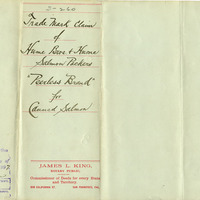 2-260
Trade Mark Claim
of
Hume Bros & Hume
Salmon Packers
"Peerless Brand"
for
Canned Salmon
JAMES L. KING,
NOTARY PUBLIC,
Commissioner of Deeds for every State
and Territory
SAN FRANCISCO, CAL.